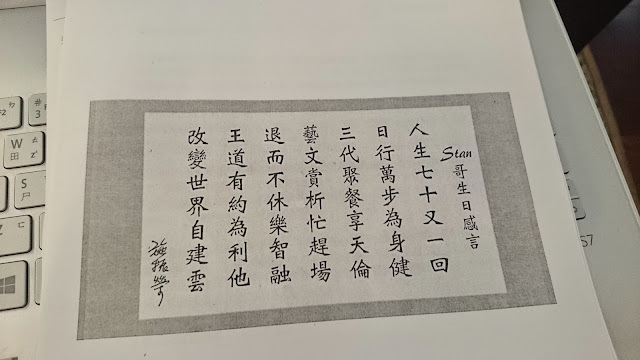 Stan哥生日感言
人生七十又一回
日行萬步為身健
三代聚餐享天倫
藝文賞析忙趕場
退而不休樂智融
王道有約為利他
改變世界自建雲
施振榮
#
3
W
田
S
尸
Z
57